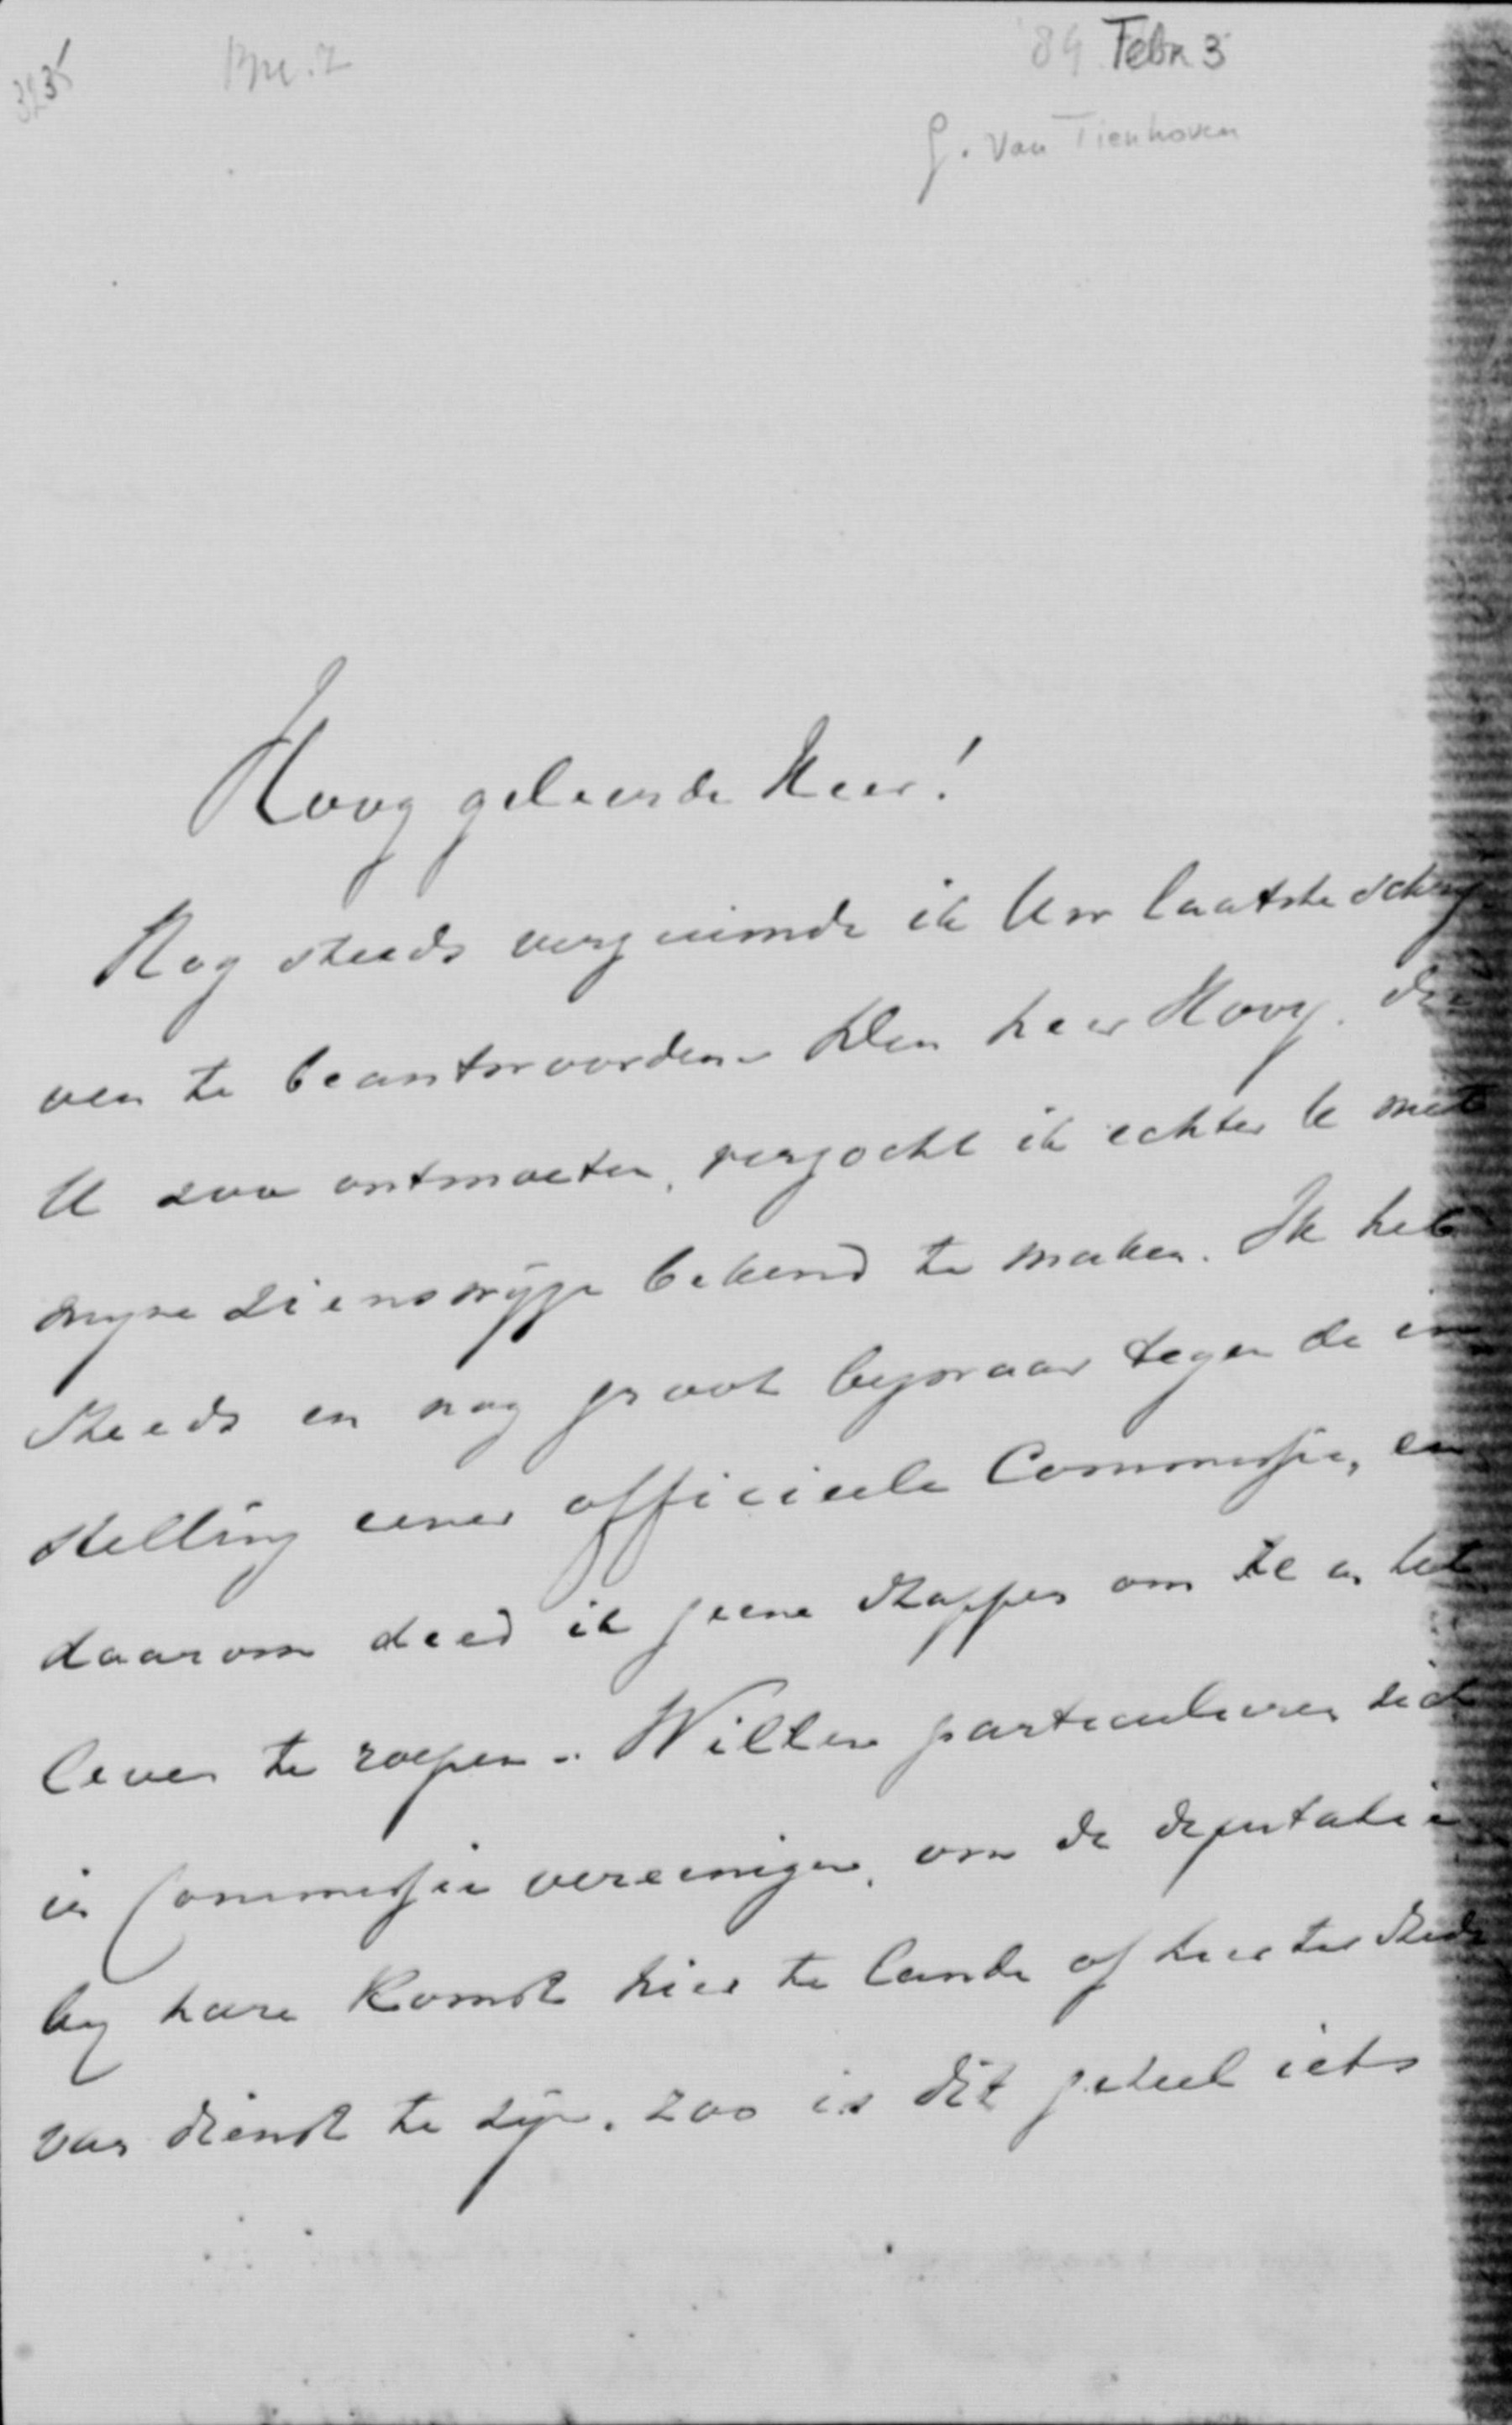 3235 '84 Febr 3
G. van Tienhoven
Hoog geleerde Heer!
Nog steeds verzuimde ik Uw laatste schrij
ven te beantwoorden. Den heer Hovy, die
U zou ontmoeten, verzocht ik echter U met
mijne zienswijze bekend te maken. Ik heb
steeds en nog groot bezwaar tegen de in
stelling eener officieele Commissie, en
daarom deed ik geene stappen om ze in het
leven te roepen. Willen particulieren zich
in Commissie vereenigen, om de deputatie
bij hare komst hier te lande of hier ter stede
van dienst te zijn, zoo is dit geheel iets